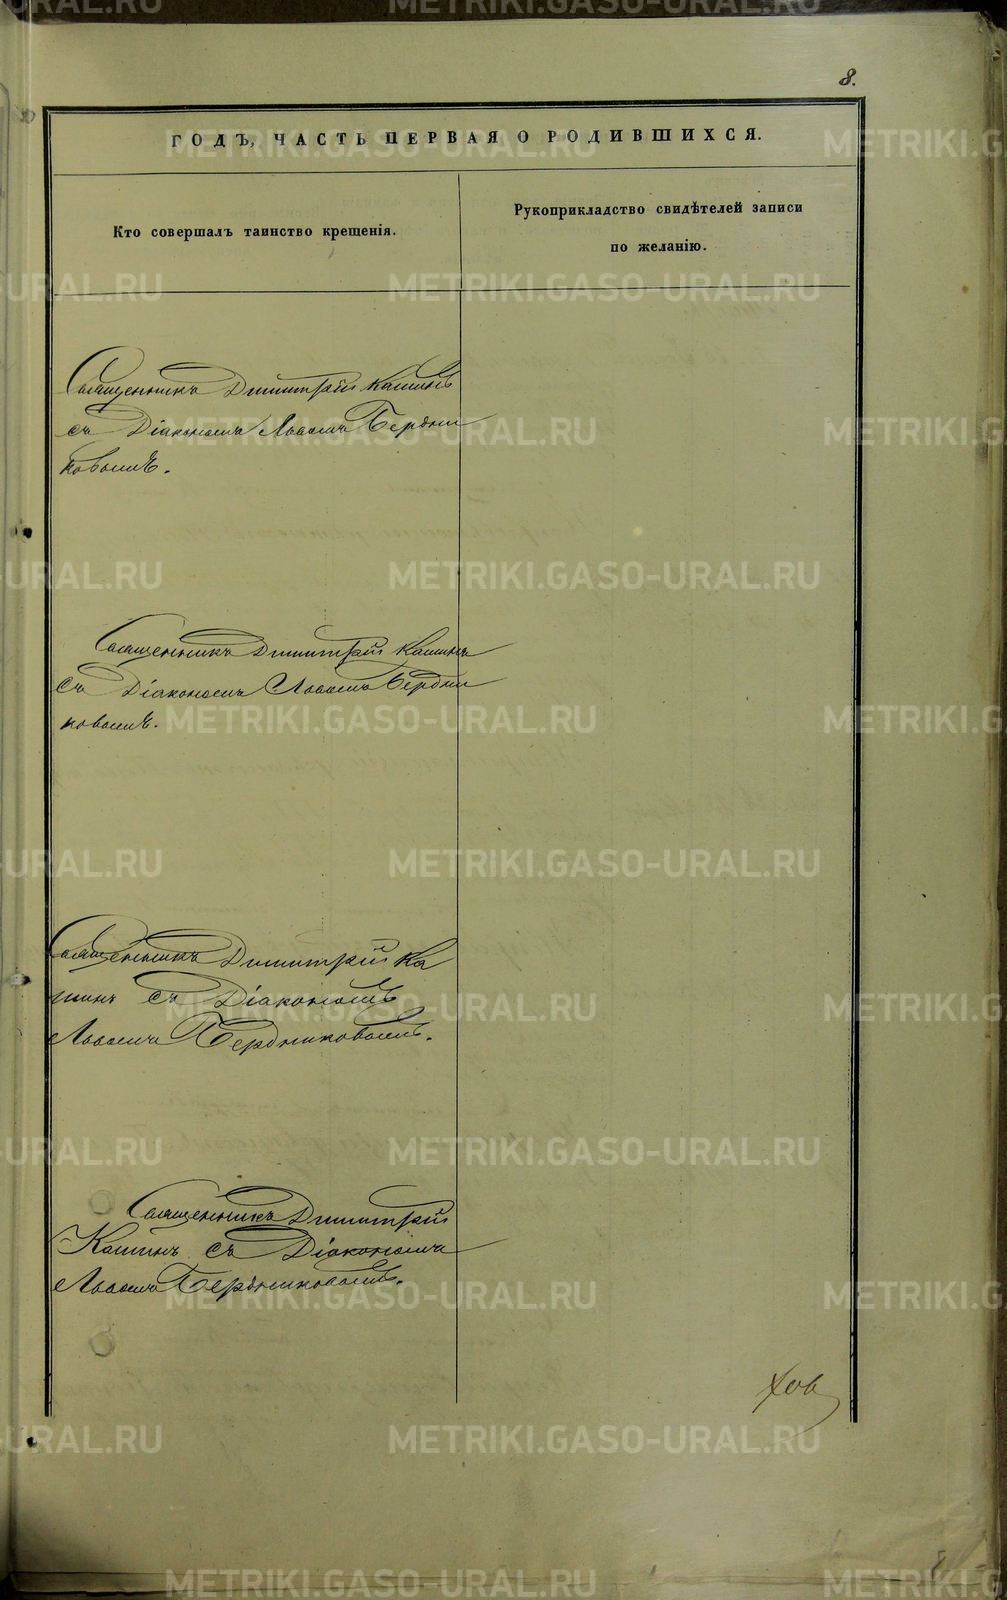 8.
ГОДЪ, ЧАСТЬ ПЕРВАЯ О РОДИВШИХСЯ.
Кто совершалъ таинство крещенія.
Рукоприкладство свидѣтелей записи
по желанію.
Священникъ Димитрій Кашинъ
съ Діакономъ Львомъ Бердни
ковымъ.
Священникъ Димитрій Кашинъ
съ Діакономъ Львомъ Бердни
ковымъ.
Священникъ Димитрій Ка
шинъ съ Діакономъ
Львомъ Бердниковымъ.
Священникъ Димитрій
Кашинъ съ Діакономъ
Львомъ Бердниковымъ.
METRIKI.GASO-URAL.RU